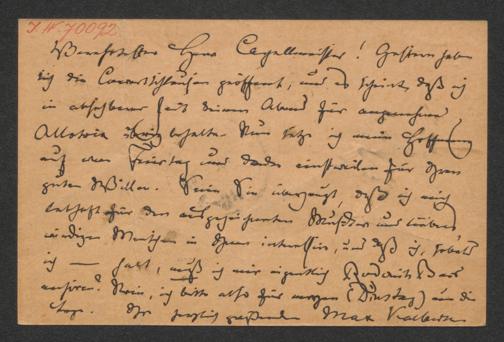 I.N. 70092
Verehrtester Herr Capellmeister! Gestern haben
sich die Concertschleusen geöffnet, und es scheint, daß ich
in absehbarer Zeit keinen Abend für angenehme
Allotria übrig behalte. Nun setze ich meine Hoffnung
auf den Feiertag und danke einstweilen für Ihren
guten Willen. Seien Sie überzeugt, daß ich mich
lebhaft für den ausgezeichneten Musiker und
würdigen Menschen in Ihnen interessire, und daß ich, sobald
ich — halt, muß ich mir eigentlich
anhören? Nein, ich bitte also für morgen (Dienstag) um die
Loge. Ihr herzlich grüßender Max Kalbeck